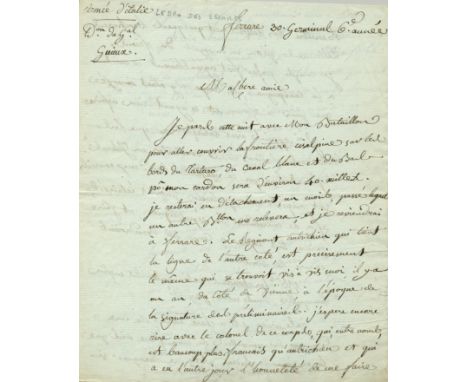 armée d'italie
ferrare 30. Germinal 6e année
Don du Gal
Guieux.
Ma chere amie
Je pars cette nuit avec mon Bataillon
pour aller couvrir la frontière cisalpine sur les
bords du Tartaro du Canal blanc et du
po. mon cordon sera d'environ 40. milles.
je resterai en détachement, un mois, passé lequel
un autre Bllon me relevera, et je reviendrai
à ferrare. Le Regiment autrichien qui tient
la ligne de l'autre coté, est precisement
le meme qui se trouvoit vis a vis moi il y a
un an du coté de Vienne à l'époque de
la signature des préliminaires. j'espere encore
rire avec le colonel de ce corps, qui, entre nous,
est beaucoup plus français qu'autrichien et qui
a eu l'autre jour l'honneteté de me faire